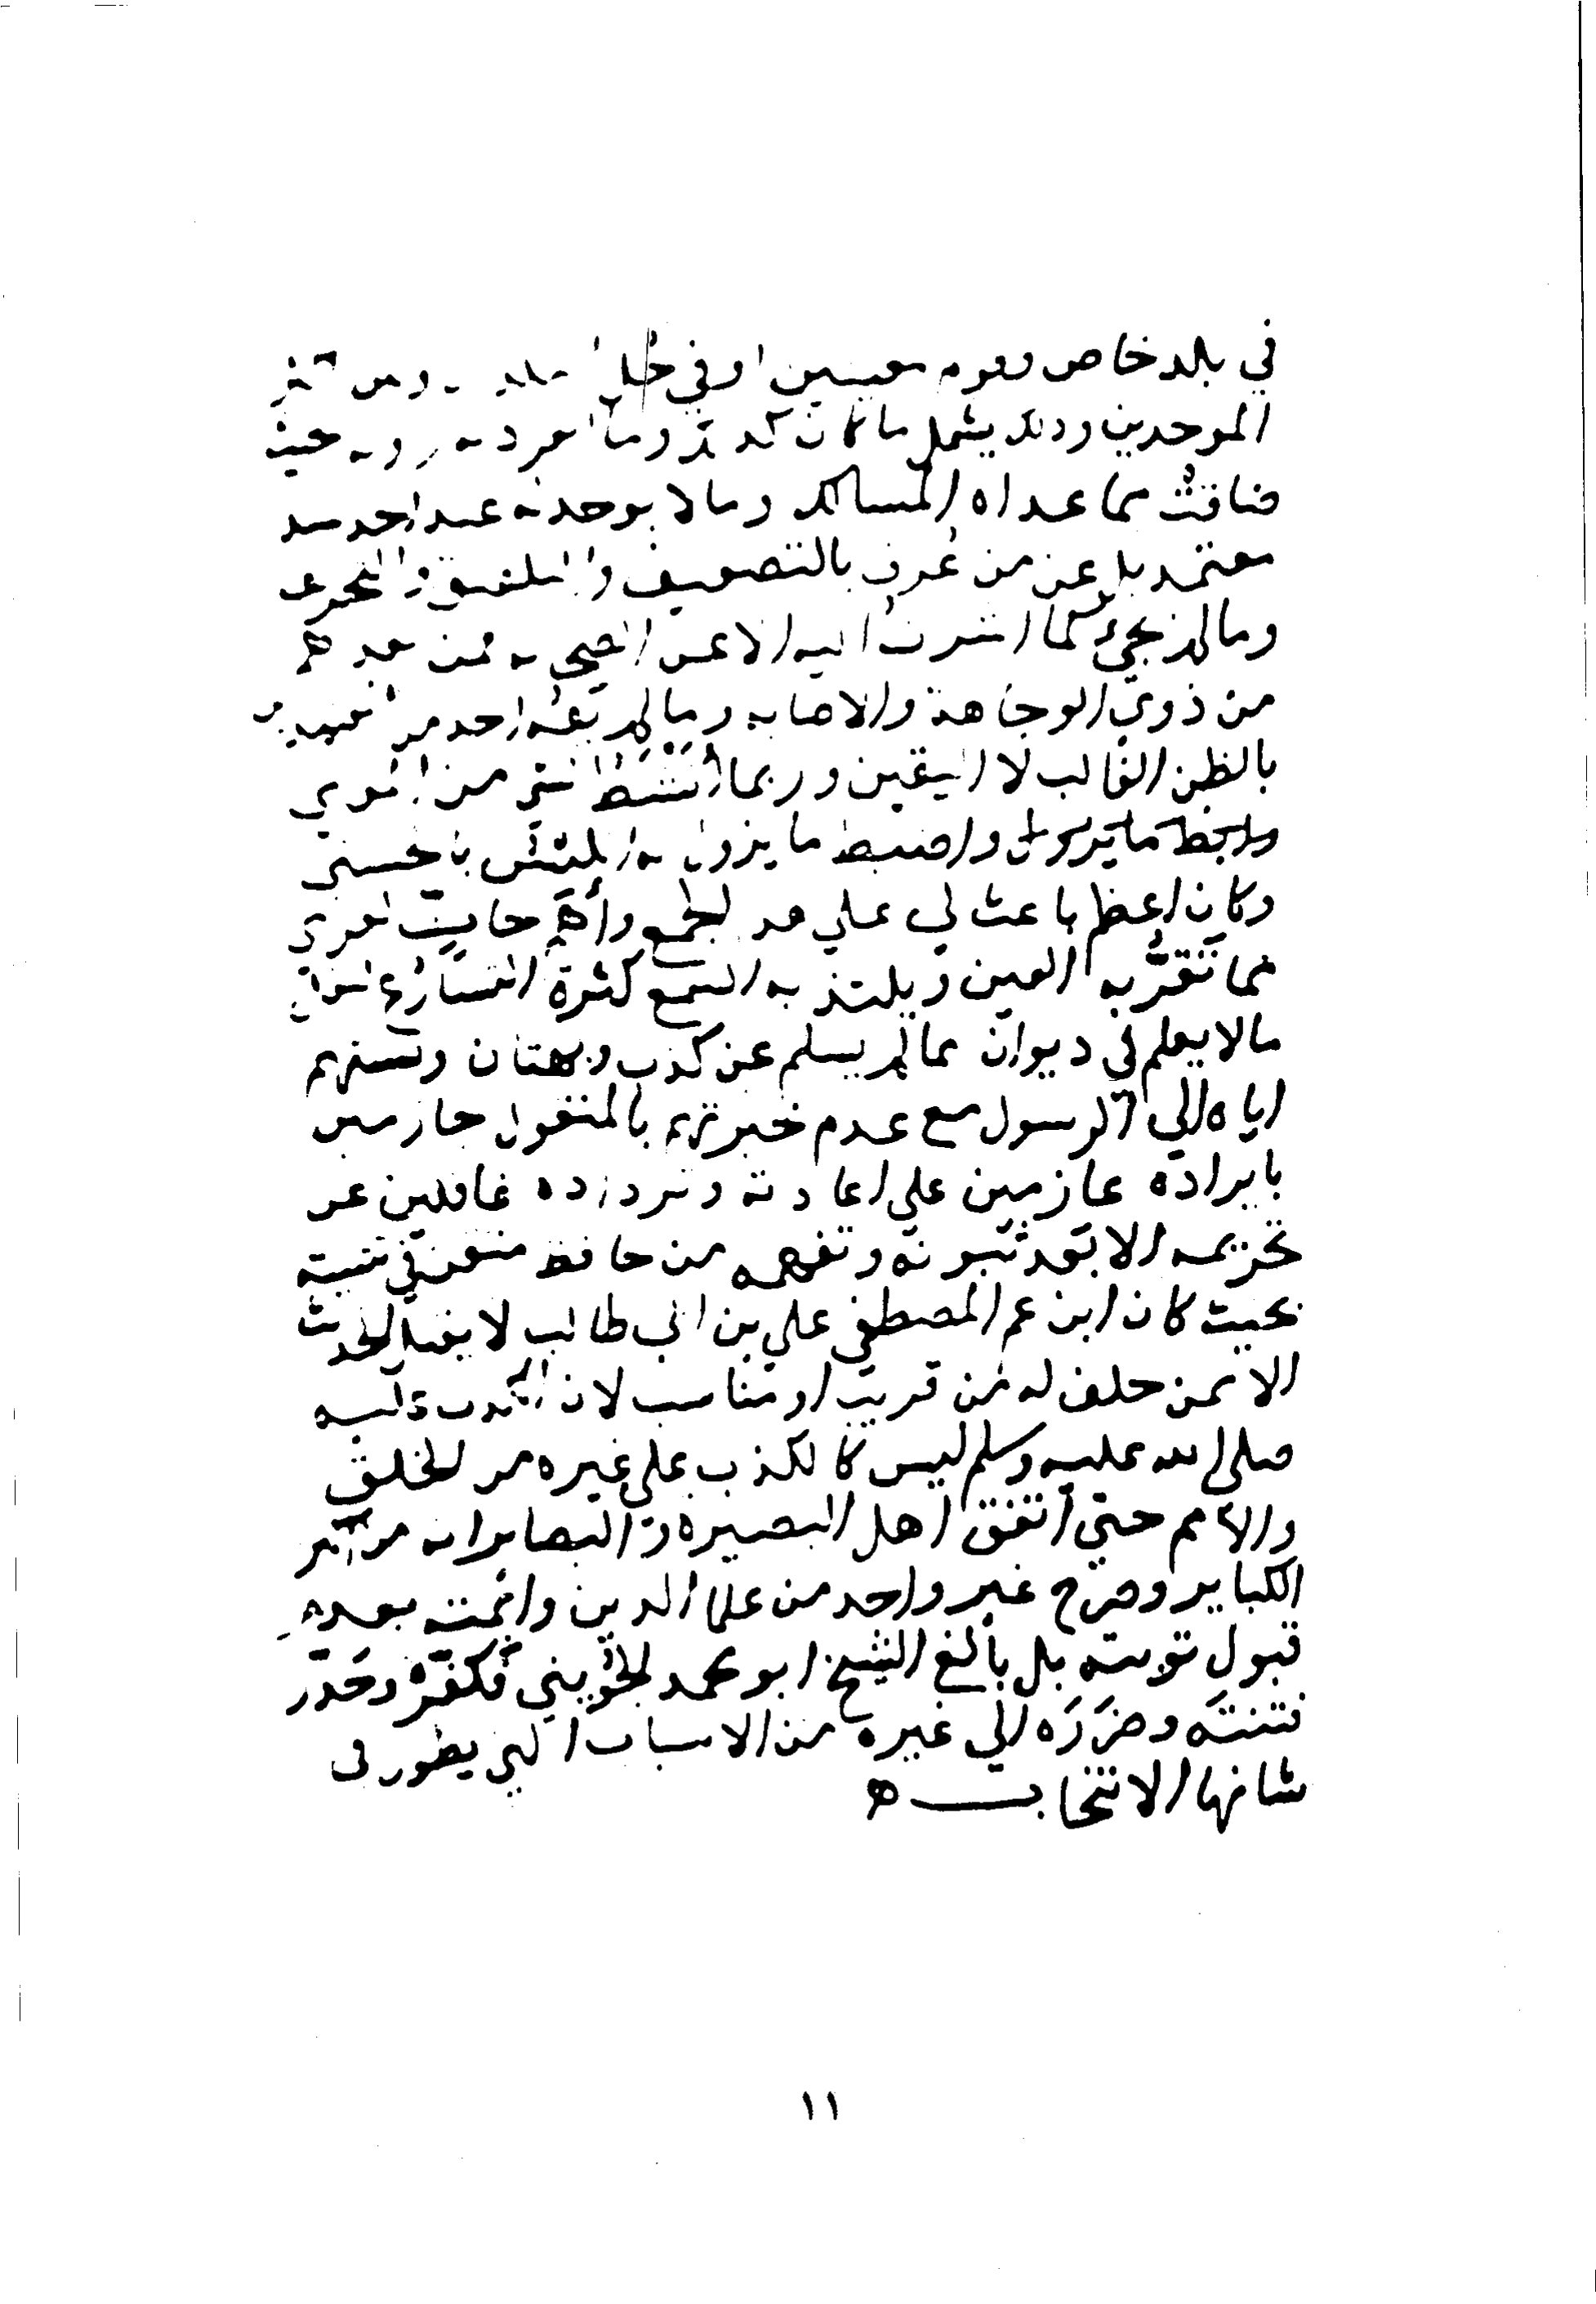 في بلد خاص وقوم معينين او في جل
الموحدين وذلك يشمل ما كان كذلك وما انفرد به حيث
ضاقت مما عداه المسالك ومالا يوجد له عند احد سند
معتمد بل عن من عرف بالتصحيف والتلفيق والتحريف
ومالم يجئ كما اشرت اليه الا عن الصحابة فمن بعدهم
من ذوي الوجاهة والاصابه ومالم يفه احد من
بالظن الغالب لا اليقين وربما انشط لشئ من المروي
واضبط ما يزول به الملتبس
وكان اعظم باعث لي علي هذا الجمع وأهم حاث لعزمي
مما تقر به العين ويلتذ به السمع كثرة التسارع لنقل
مالا يعلم في ديوان مما لم يسلم عن كذب وبهتان ونسبتهم
اياه الي الرسول مع عدم خبرتهم بالمنقول جازمين
بايراده عازمين علي اعادته وترداده غافلين عن
تحريمه الا بعد ثبوته وتفهمه من حافظ متقن في تثبته
بحيث كان ابن عم المصطفى علي بن ابي طالب لا يقبل الحديث
الا ممن حلف له من قريب او مناسب لان الكذب عليه
صلى الله عليه وسلم ليس كالكذب على غيره من الخلق
والامم حتي اتفق اهل البصيرة والبصاير انه من اكبر
الكباير وصرح غير واحد من علما الدين وائمته بعدم
قبول توبته بل بالغ الشيخ ابو محمد الجويني فكفره وحذر
فتنته وضرره الي غيره من الاسباب التي يطول في
شانها الانتخاب ه
١١